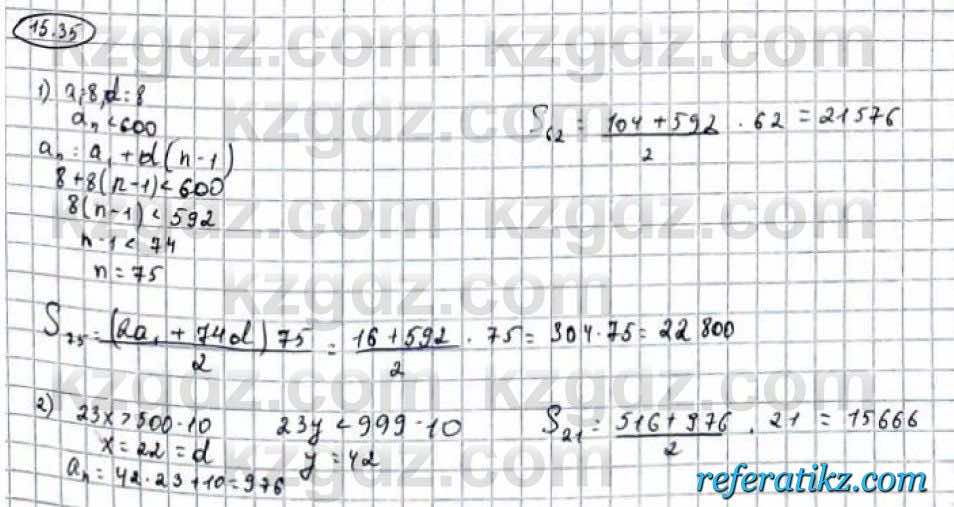 15.35
1) a₁=8, d=8
aₙ<600
aₙ = a₁ + d(n-1)
8+8(n-1)<600
8(n-1)<592
n-1<74
n=75
S₆₂ = (104+592)/2 · 62 = 21576
S₇₅ = (2a₁ + 74d)75/2 = (16+592)/2 · 75 = 304·75 = 22 800
2) 23x>500-10
x=22=d
aₙ = 42·23+10=976
23y<999-10
y=42
S₂₁ = (516+976)/2 · 21 = 15666
kzgdz.com
referatikz.com